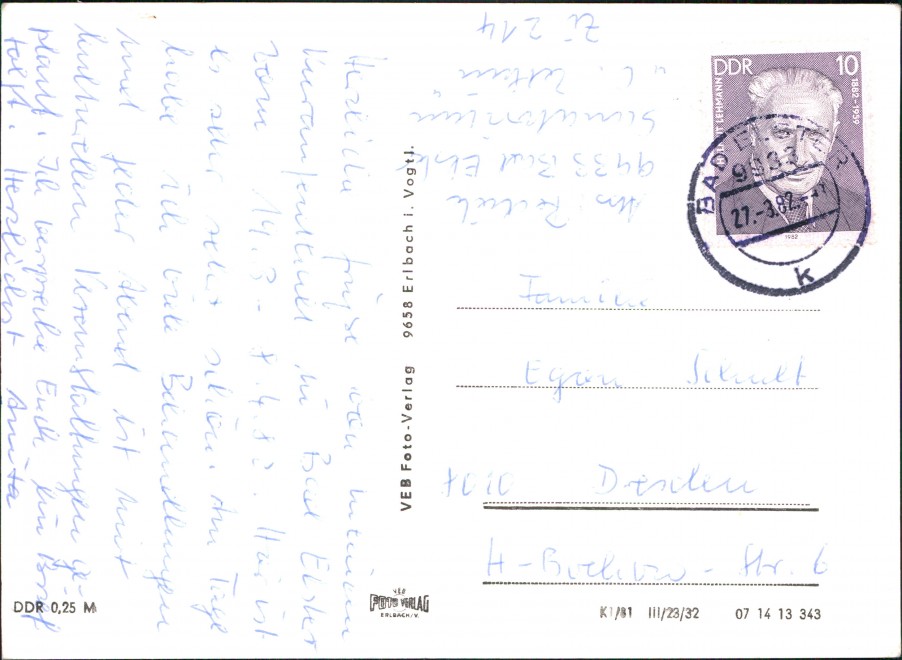 Herzliche Grüße von meinem
Kuraufenthalt in Bad Elster
vom 14.3. - 8.4.82. Hier ist
es sehr sehr schön. Am Tage
habe ich viele Behandlungen
und jeder Abend ist mit
kulturellen Veranstaltungen ge-
plant. Ich verspreche Euch, ein Brief
folgt. Herzlichst Anita
Abs.
9933 Bad Elster
Sanatorium
"C. Zetkin"
Zi 214
DDR 10
LEHMANN 1882-1959
1982
BAD ELSTER
9933
27.-3.82.
k
Familie
Egon Schult
8010 Dresden
Str. 6
VEB Foto-Verlag 9658 Erlbach i. Vogtl.
DDR 0,25 M
VEB
FOTO VERLAG
ERLBACH/V.
K1/81 III/23/32 07 14 13 343